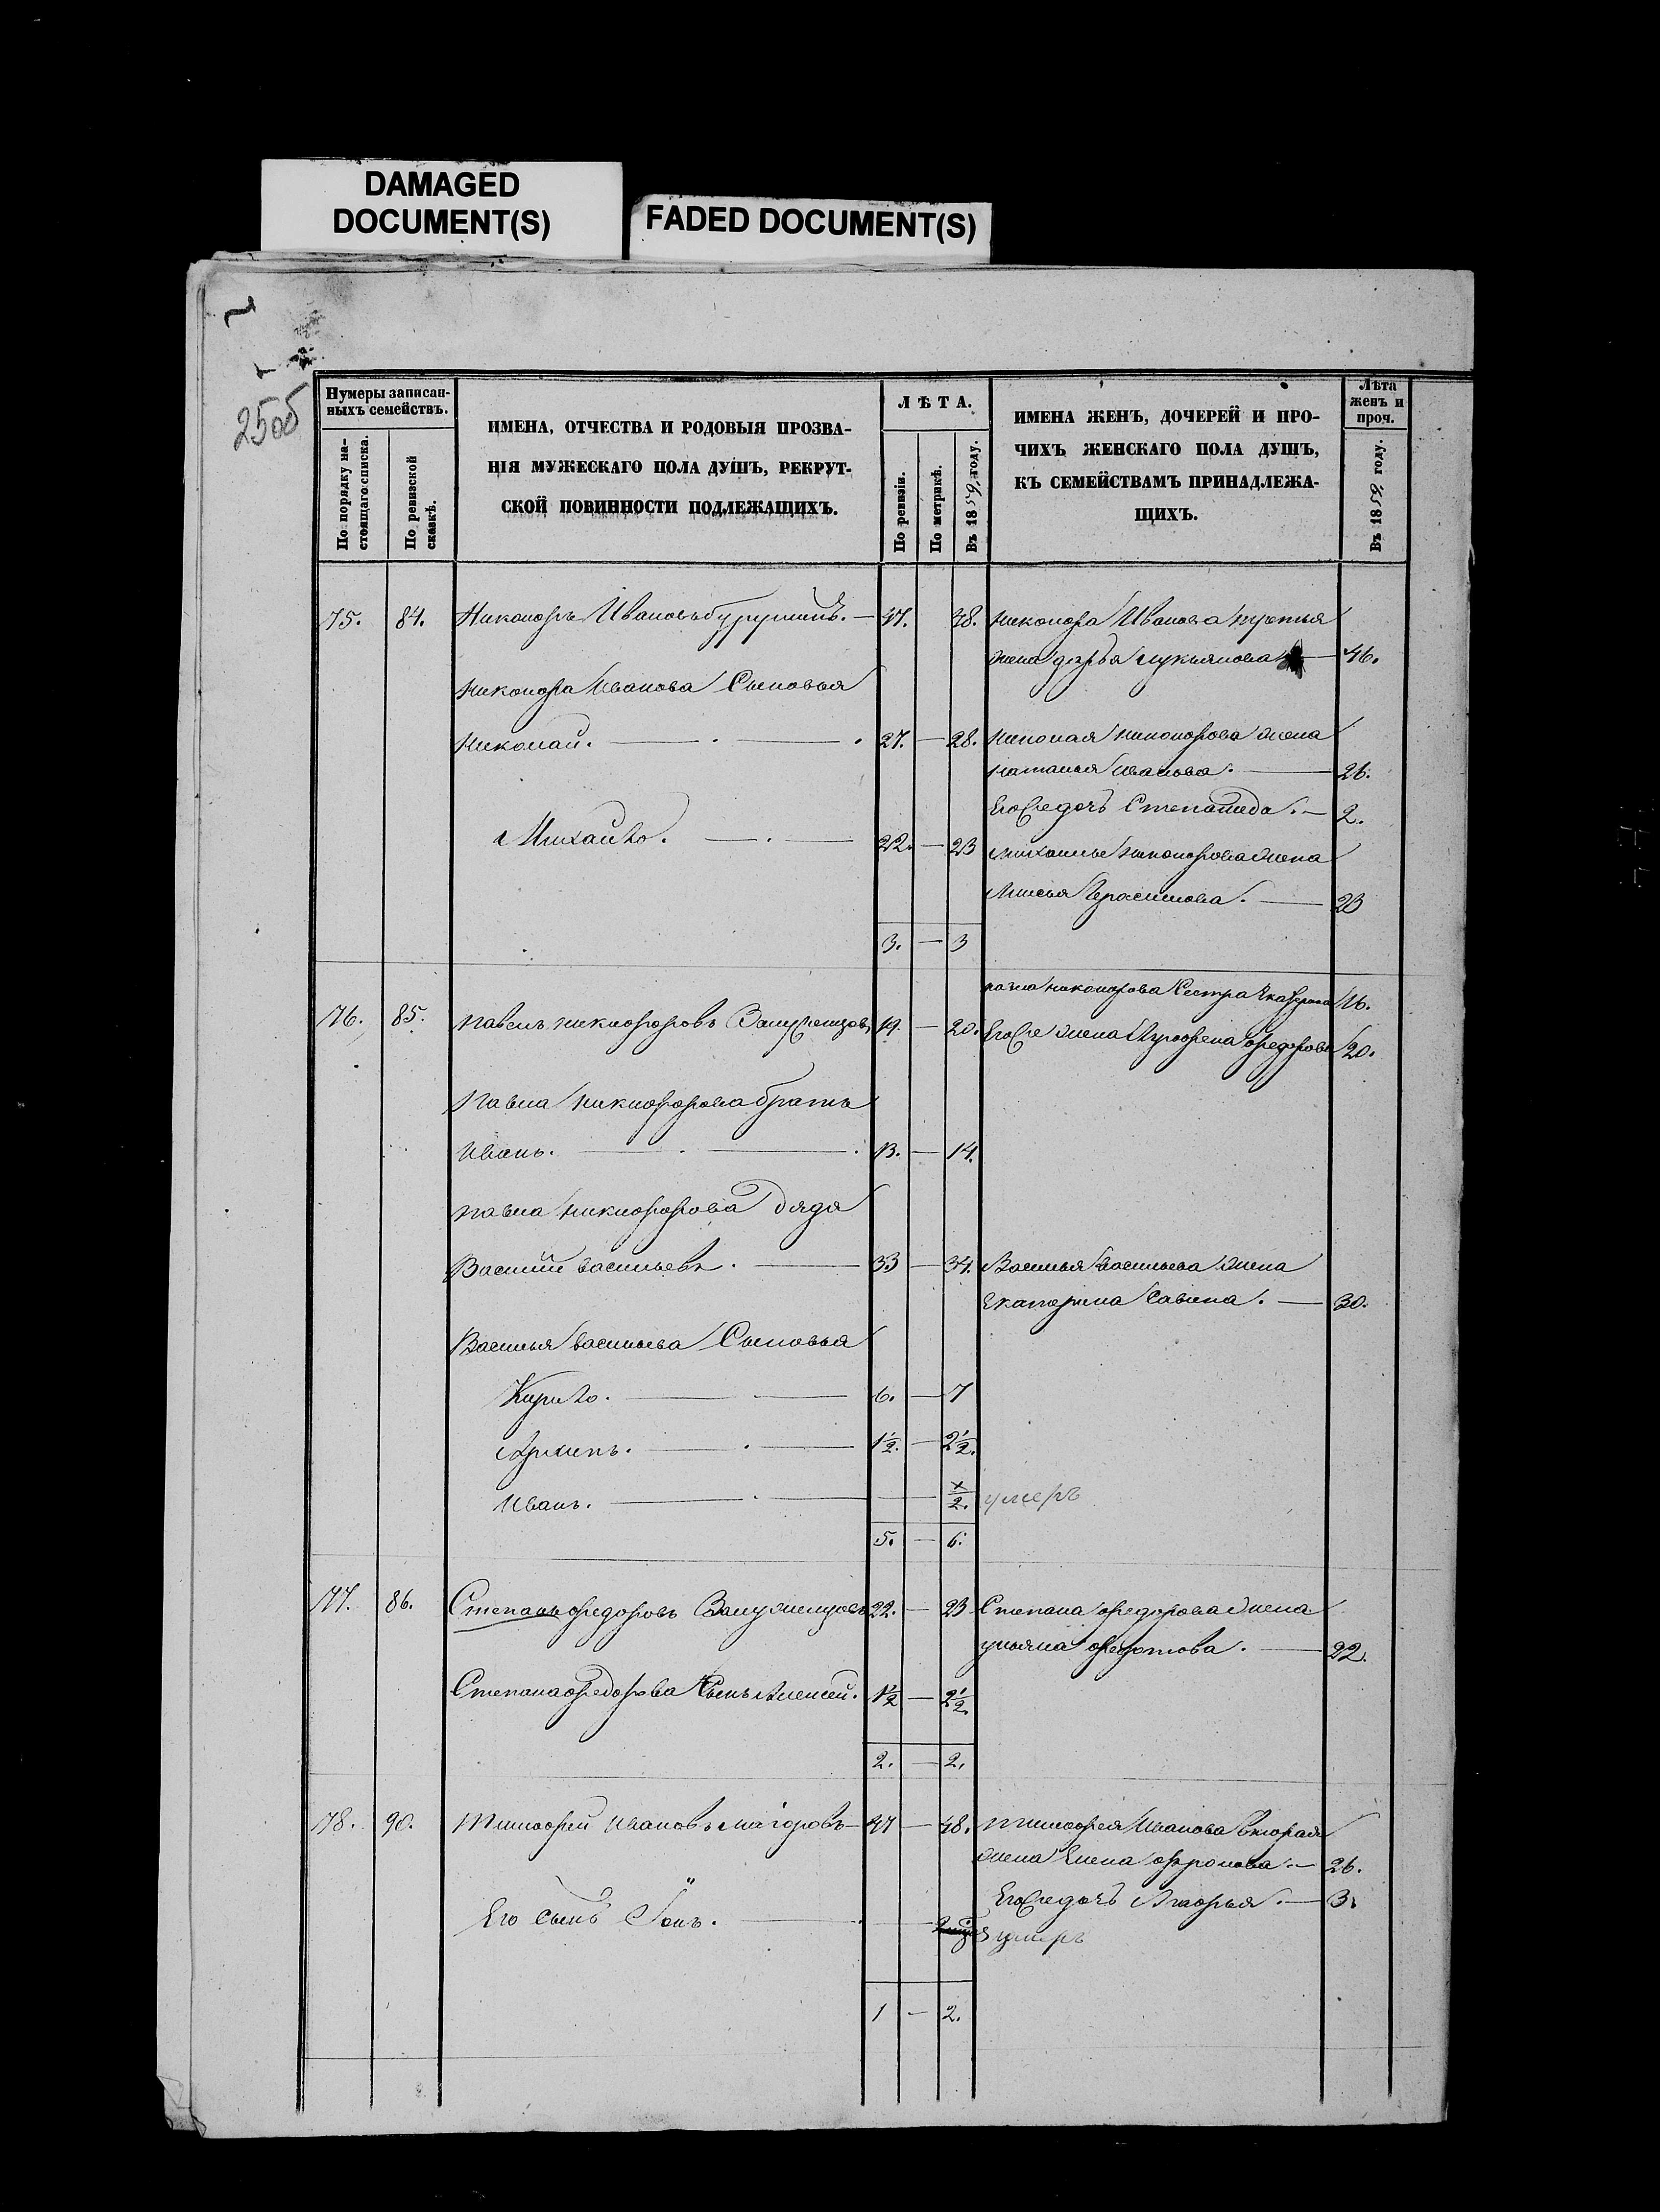 DAMAGED
DOCUMENT(S)
FADED DOCUMENT(S)
250б
Нумеры записан-
ныхъ семействъ.
По порядку на-
стоящаго списка.
По ревизской
сказкѣ.
ИМЕНА, ОТЧЕСТВА И РОДОВЫЯ ПРОЗВА-
НІЯ МУЖЕСКАГО ПОЛА ДУШЪ, РЕКРУТ-
СКОЙ ПОВИННОСТИ ПОДЛЕЖАЩИХЪ.
ЛѢТА.
По ревизіи.
По метрикѣ.
Въ 1859 году.
ИМЕНА ЖЕНЪ, ДОЧЕРЕЙ И ПРО-
ЧИХЪ ЖЕНСКАГО ПОЛА ДУШЪ,
КЪ СЕМЕЙСТВАМЪ ПРИНАДЛЕЖА-
ЩИХЪ.
Лѣта
женъ и
проч.
Въ 18 году.
75. 84. Никоноръ Ивановъ — 47. 48. Никонора Иванова третья
жена дарья лукьянова — 46.
Никонора Иванова Сыновья
Николай. — 27. — 28. Николая Никонорова жена
Наталья Иванова. — 26.
Его же дочь Степанида. — 2.
Михайло. — 22. — 23 Михайлы Никонорова жена
Герасимова. — 23
3. — 3
Павла Никонорова Сестра 16.
76. 85. Павелъ Никифоровъ 19. — 20. Его же жена Федорова 20.
Павла Никифорова братъ
Иванъ. — 13. — 14.
Павла Никифорова дядя
Василій Васильевъ. — 33 — 34. Василья Васильева жена
Екатерина Савина. — 30.
Василья Васильева Сыновья
Кирило. — 6. — 7
Архипъ. — 1½. — 2½.
Иванъ. — ½. умеръ
5. — 6.
77. 86. Степанъ Федоровъ 22. — 23 Степана Федорова жена
ульяна Федотова. — 22.
Степана Федорова Сынъ Алексей. 1½ — 2½.
2. — 2.
78. 90. Тимофей Ивановъ Маіоровъ — 47 — 48. Тимофея Иванова вторая
жена Елена Фролова. — 26.
Его же дочь — 3.
Его сынъ — умеръ
1 — 2.